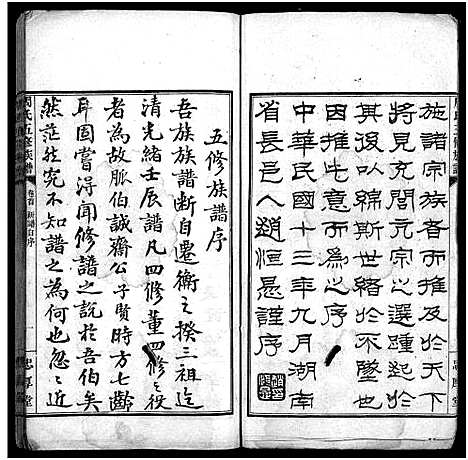 施諸宗族者而推及於天下
將見充閭亢宗之選踵起於
其後以綿斯世緒於不墜也
因推此意而為之序
中華民國十三年九月湖南
省長邑人趙恒惕謹序
五修族譜序
吾族族譜斷自遷衡之揆三祖迄
清光緒壬辰譜凡四修董四修之役
者為故脈伯誠齋公子賢時方七齡
耳固嘗浔聞修譜之說於吾伯矣
然茫然究不知譜之為何也忽之近
周氏五修族譜
卷首
新譜自序
一
忠厚堂